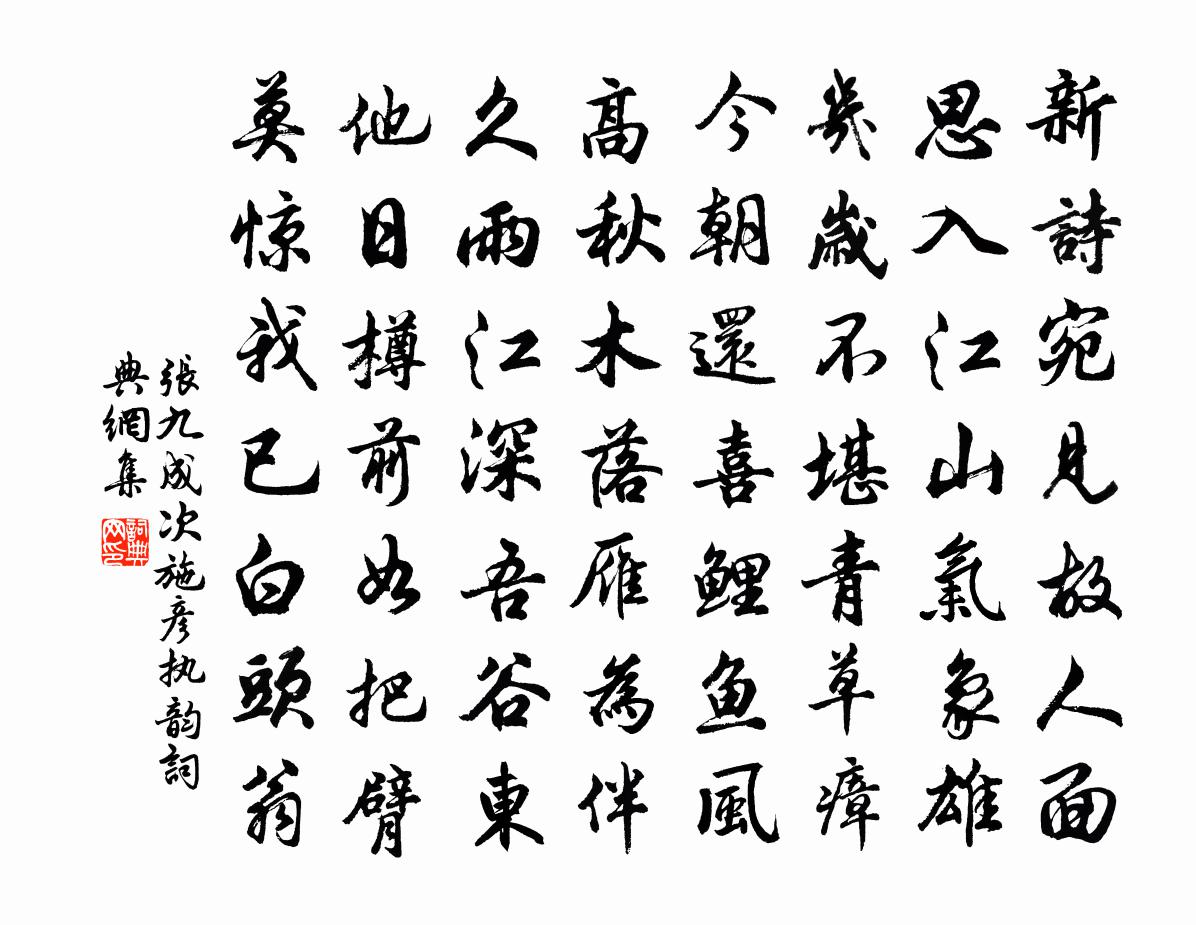 新詩宛見故人面
思入江山氣象雄
幾歲不堪青草瘴
今朝還喜鯉鱼風
高秋木落雁為伴
久雨江深吾谷東
他日樽前如把臂
莫惊我已白頭翁
張九成次施彦执韵詞
典網集
詞典
网印